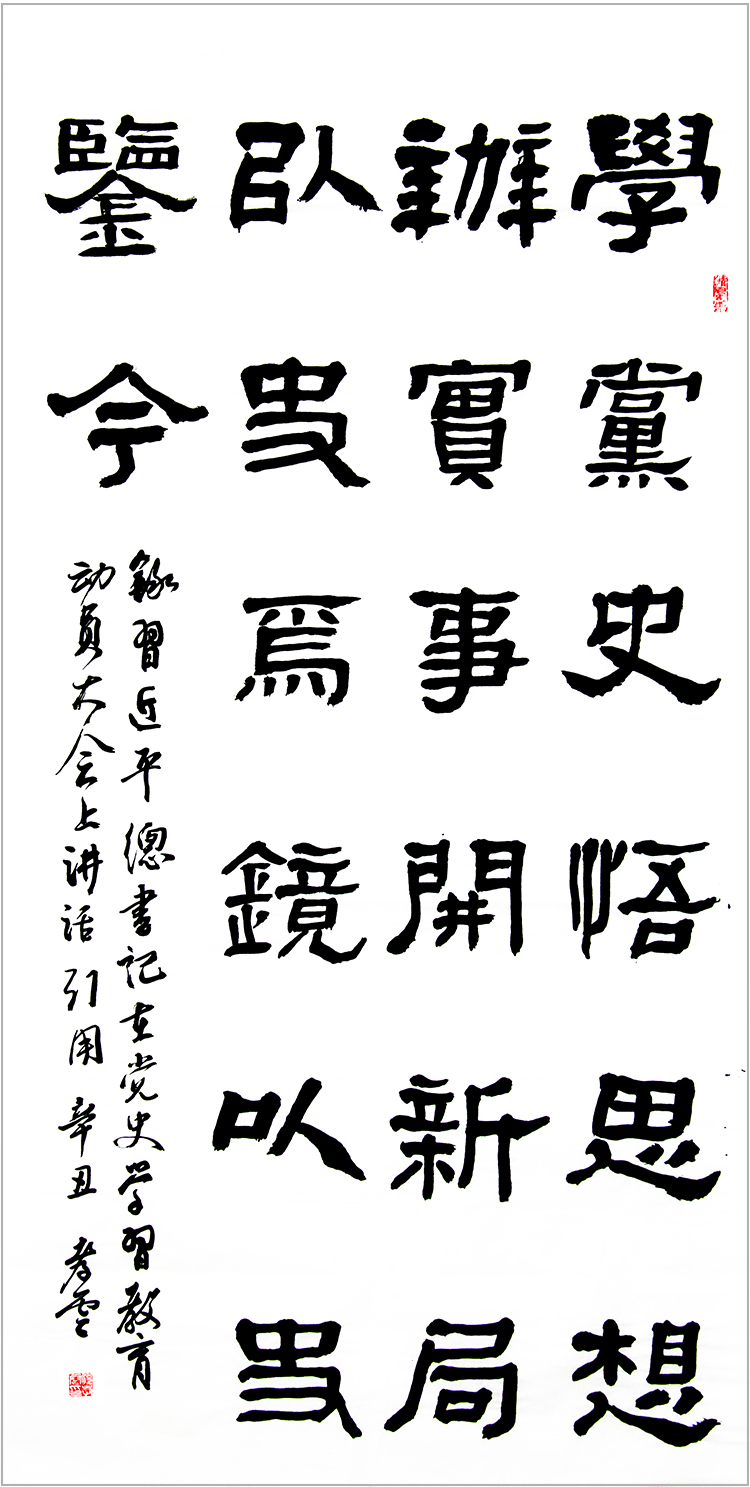 學黨史悟思想
辦實事開新局
以史爲鏡以史
鑒今
錄習近平總書记在党史学習教育
动員大会上讲话引用 辛丑 孝雲